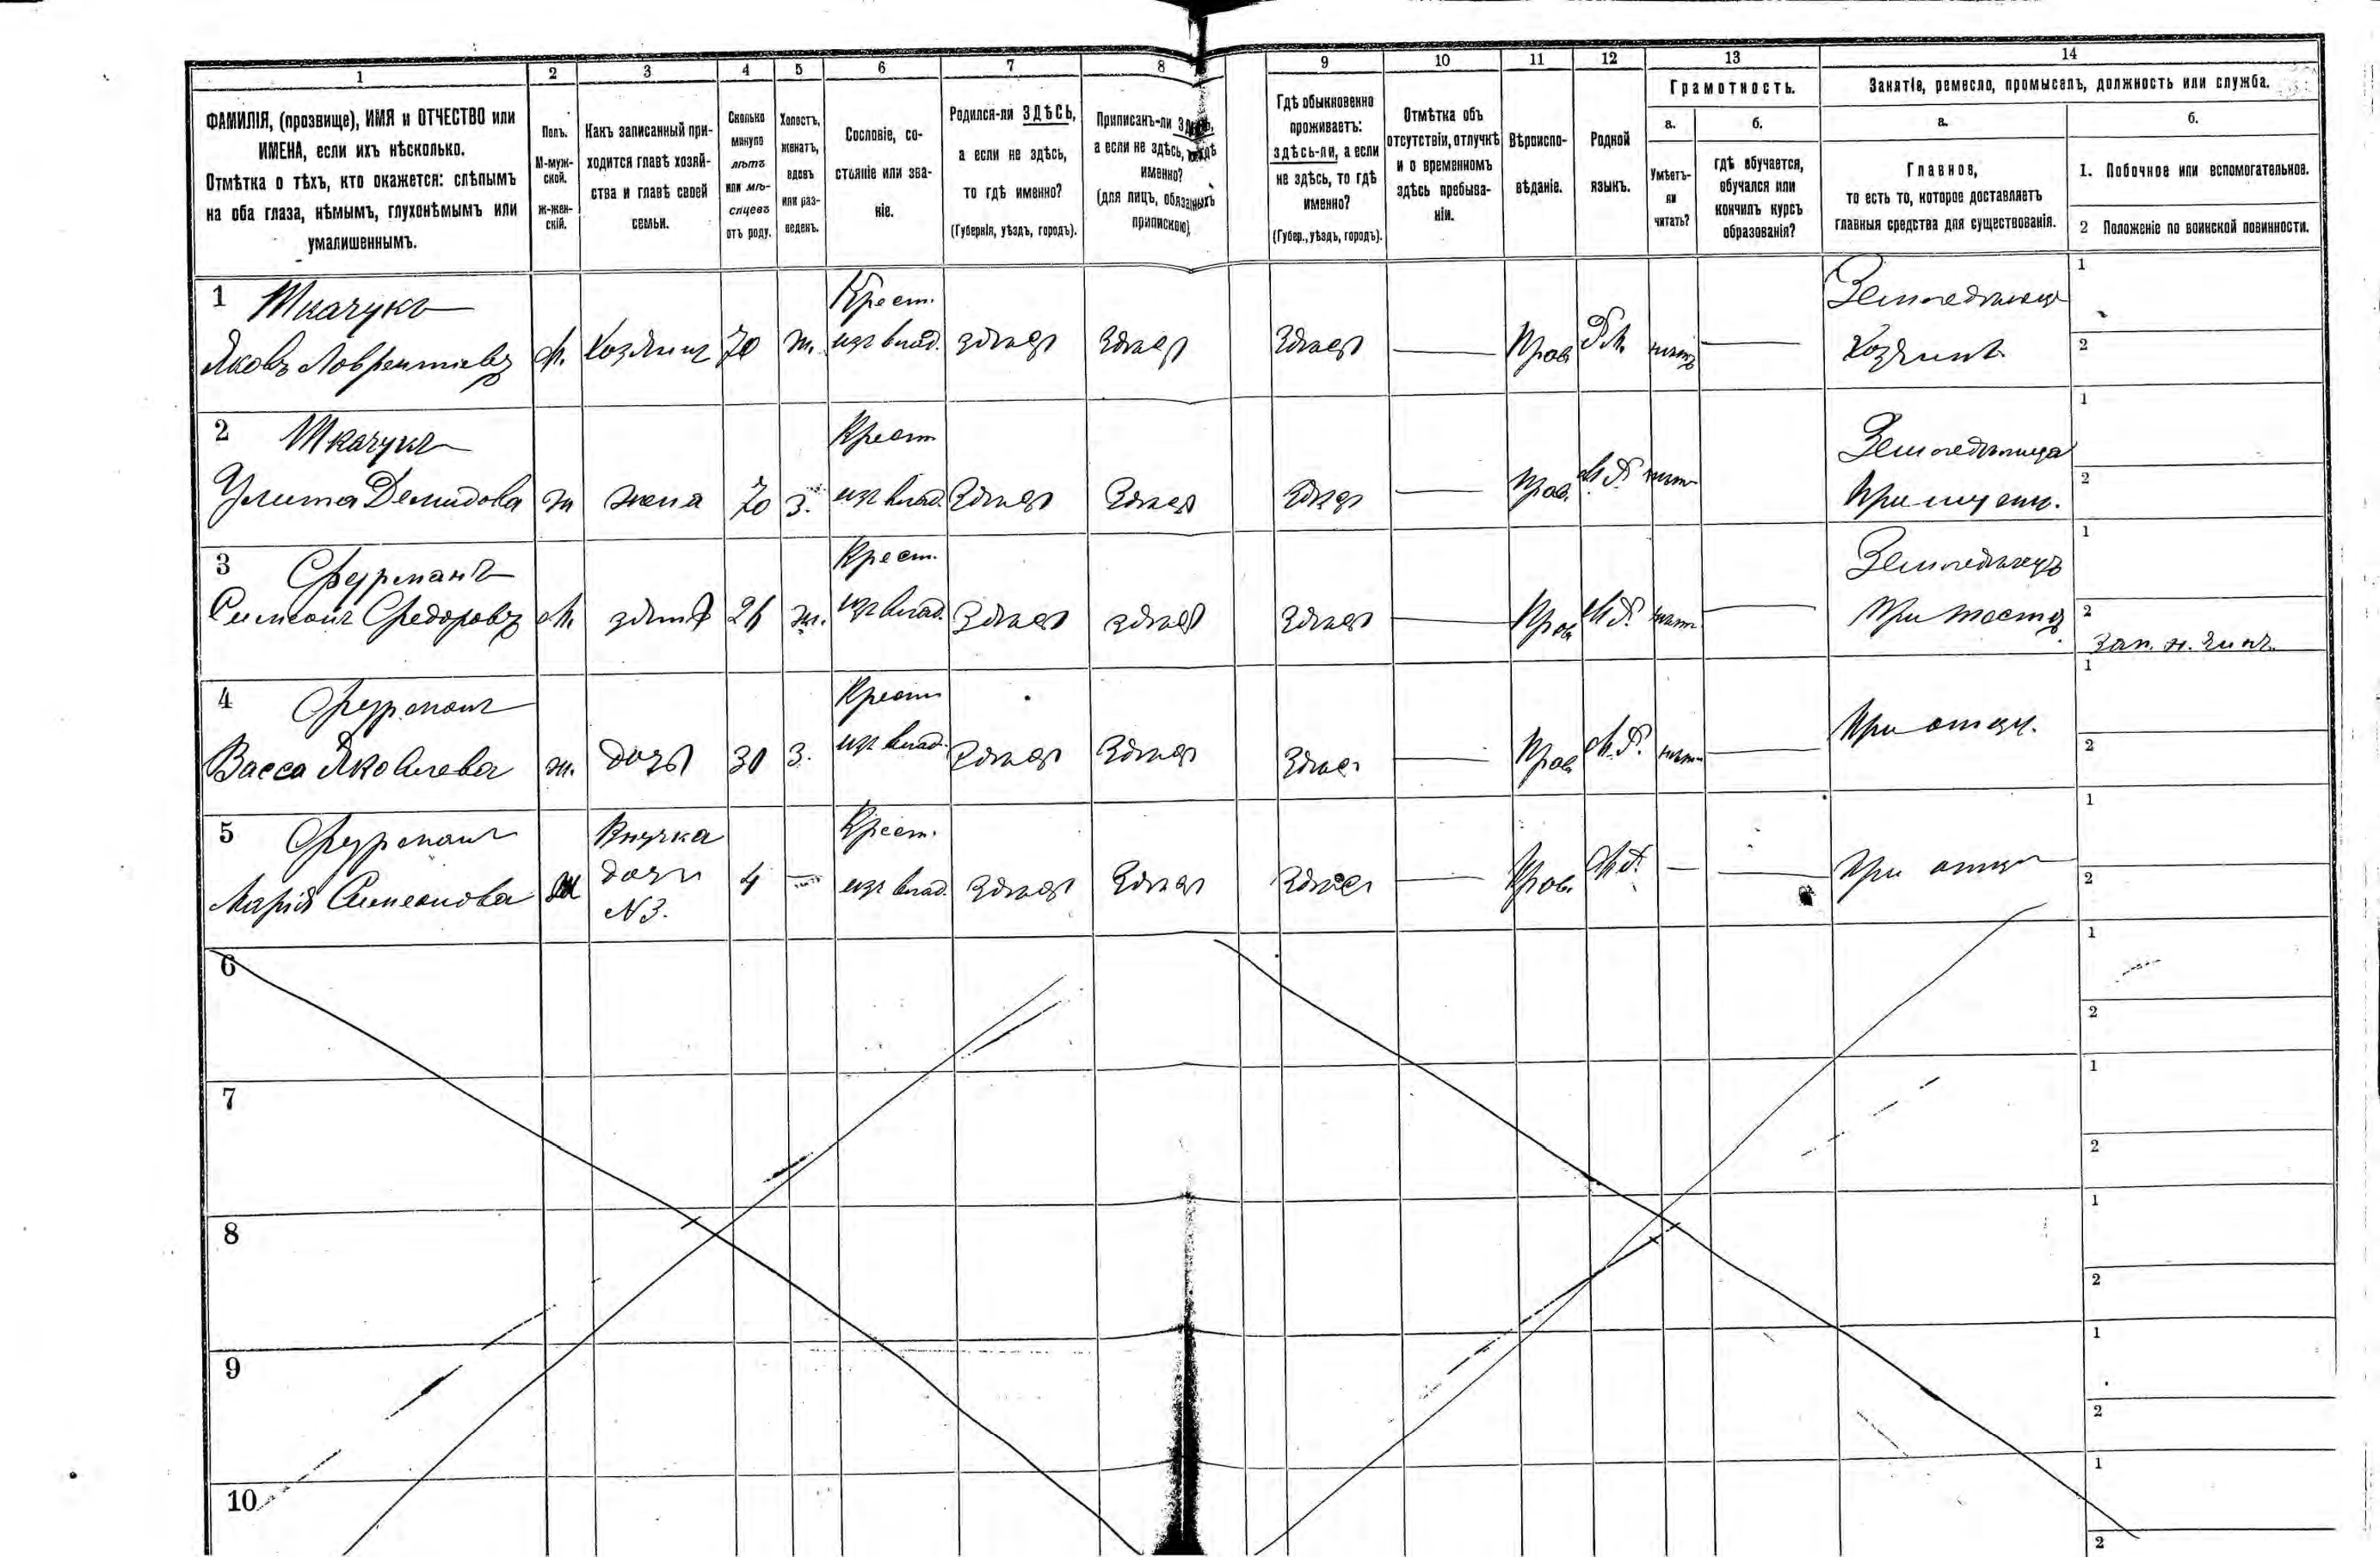 1 2 3 4 5 6 7 8 9 10 11 12 13 14
ФАМИЛІЯ, (прозвище), ИМЯ и ОТЧЕСТВО или
ИМЕНА, если ихъ нѣсколько.
Отмѣтка о тѣхъ, кто окажется: слѣпымъ
на оба глаза, нѣмымъ, глухонѣмымъ или
умалишеннымъ.
Полъ.
М-муж-
ской.
Ж-жен-
скій.
Какъ записанный при-
ходится главѣ хозяй-
ства и главѣ своей
семьи.
Сколько
минуло
лѣтъ
или мѣ-
сяцевъ
отъ роду.
Холостъ,
женатъ,
вдовъ
или раз-
веденъ.
Сословіе, со-
стояніе или зва-
ніе.
Родился-ли ЗДѢСЬ,
а если не здѣсь,
то гдѣ именно?
(Губернія, уѣздъ, городъ).
Приписанъ-ли ЗДѢСЬ,
а если не здѣсь, то гдѣ
именно?
(для лицъ, обязанныхъ
припискою)
Гдѣ обыкновенно
проживаетъ:
здѣсь-ли, а если
не здѣсь, то гдѣ
именно?
(Губер., уѣздъ, городъ).
Отмѣтка объ
отсутствіи, отлучкѣ
и о временномъ
здѣсь пребыва-
ніи.
Вѣроиспо-
вѣданіе.
Родной
языкъ.
Грамотность.
а.
Умѣетъ-
ли
читать?
б.
гдѣ обучается,
обучался или
кончилъ курсъ
образованія?
Занятіе, ремесло, промыселъ, должность или служба.
а.
Главное,
то есть то, которое доставляетъ
главныя средства для существованія.
б.
1. Побочное или вспомогательное.
2 Положеніе по воинской повинности.
1 Ткачукъ Крест. Земледѣлецъ 1
Яковъ Лаврентіевъ м. хозяинъ 70 ж. изъ влад. здѣсь здѣсь здѣсь — Прав нѣтъ — Хозяинъ 2
2 Ткачукъ Крест Земледѣлица 1
Улита Демидова ж жена 70 з. изъ влад. здѣсь здѣсь здѣсь — Прав. М.Р. нѣтъ При мужѣ. 2
3 Фурманъ Крест. Земледѣлецъ 1
Симеонъ Федоровъ М. зять 26 ж. изъ влад. здѣсь здѣсь здѣсь — Прав М.Р. нѣтъ — При тестѣ 2
зап. н. чинъ.
4 Фурманъ Крест 1
Васса Яковлева ж. дочь 30 з. изъ влад. здѣсь здѣсь здѣсь — Прав М.Р. нѣтъ — При отцѣ. 2
5 Фурманъ Внучка Крест. 1
Марія Симеонова ж дочь 4 — изъ влад. здѣсь здѣсь здѣсь — Прав. М.Р. — — При отцѣ 2
N 3.
6 1
2
7 1
2
8 1
2
9 1
2
10 1
2